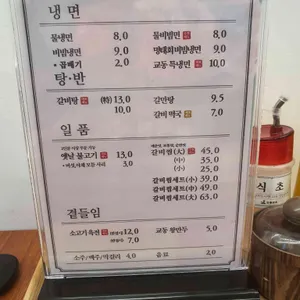 냉면
물냉면 8,0
물비빔면 8,0
비빔냉면 9,0
명태회비빔냉면 9,0
• 곱빼기 2,0
교동 특냉면 10,0
탕·반
갈비탕 (特) 13,0
10,0
갈만탕 9,5
갈비 떡국 7,0
일품
옛날 불고기 13,0
• 버섯,야채 모듬 사리 3,0
갈비찜 (大) 45,0
(中) 35,0
(小) 25,0
갈비찜세트(小) 39,0
갈비찜세트(中) 49,0
갈비찜세트(大) 63,0
곁들임
소고기육전 12,0
7,0
교동 왕만두 5,0
소주/맥주/막걸리 4,0
음료 2,0
식초